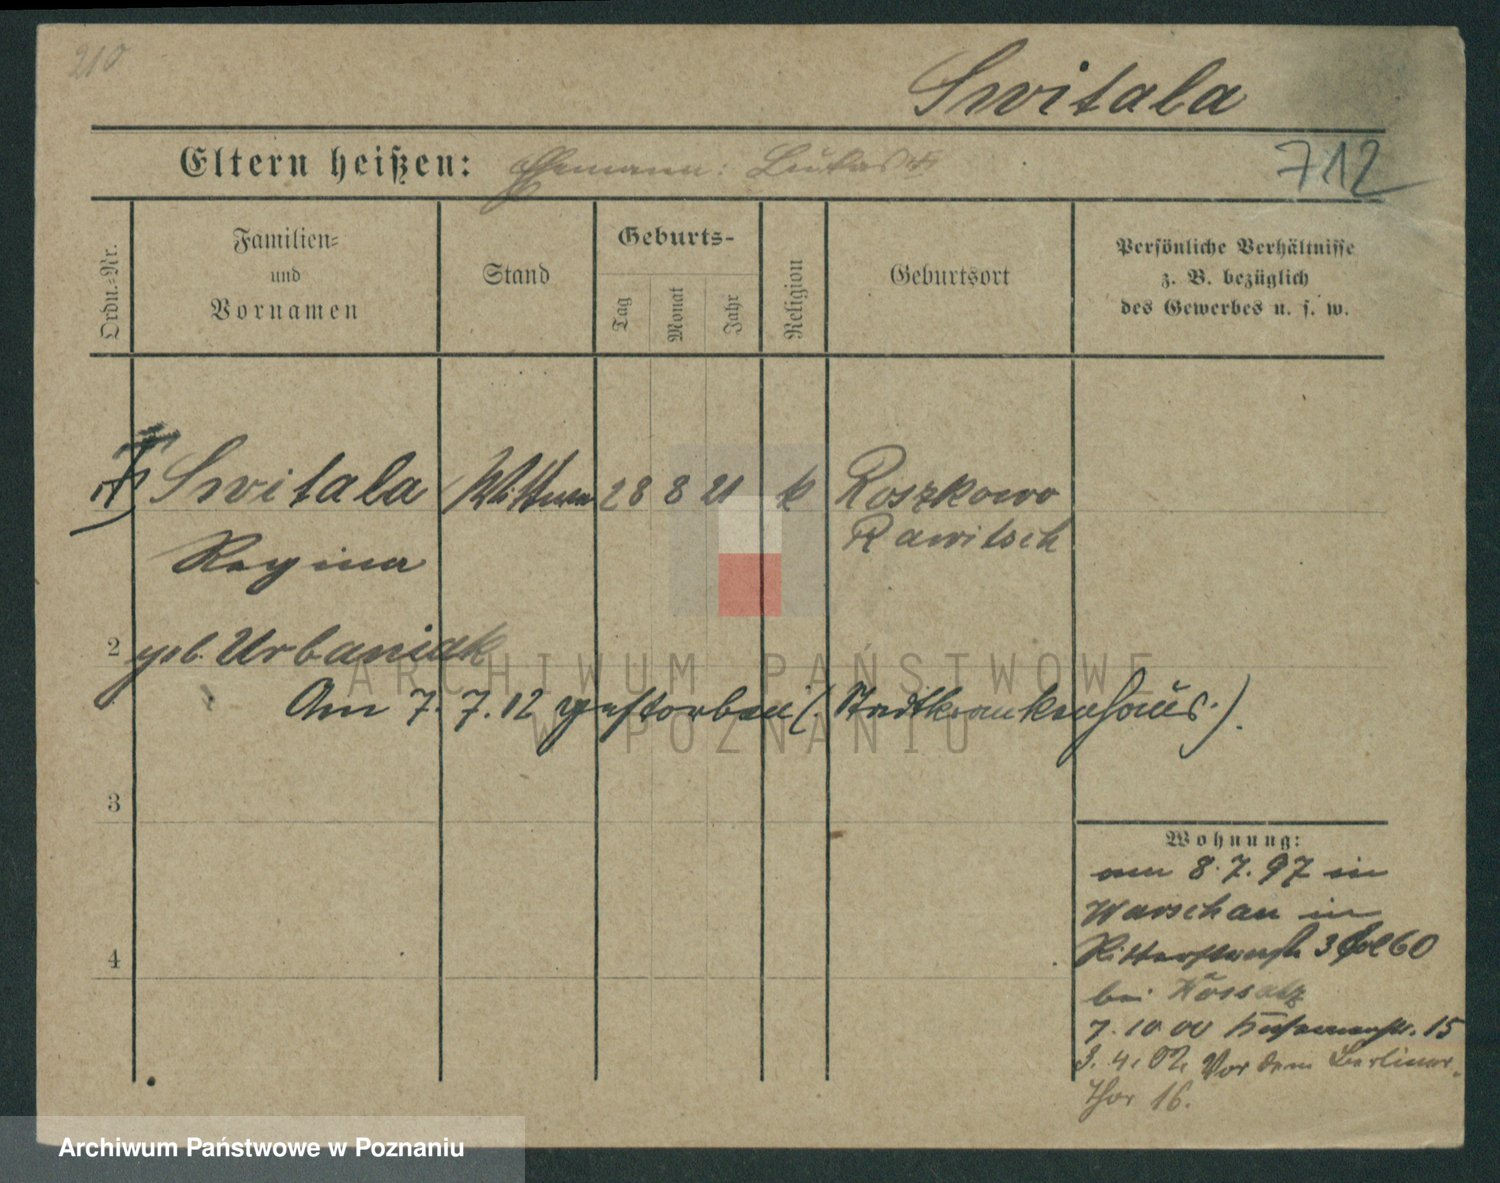 210
Switala
Eltern heißen: Ehemann: Lukas
712
Ordn.-Nr.
Familien-
und
Vornamen
Stand
Geburts-
Tag
Monat
Jahr
Religion
Geburtsort
Persönliche Verhältnisse
z. B. bezüglich
des Gewerbes u. s. w.
Switala Wittwe 28 8 21 k Roszkowo
Rawitsch
Regina
2 geb. Urbaniak
Am 7. 7. 12 gestorben (Stadtkrankenhaus).
3
4
Wohnung:
am 8. 7. 97 in
Warschau in
Ritterstraße 3 60
bei
7. 10 00 15
3. 4. 02 Vor dem Berliner
Thor 16.
ARCHIWUM PAŃSTWOWE
W POZNANIU
Archiwum Państwowe w Poznaniu